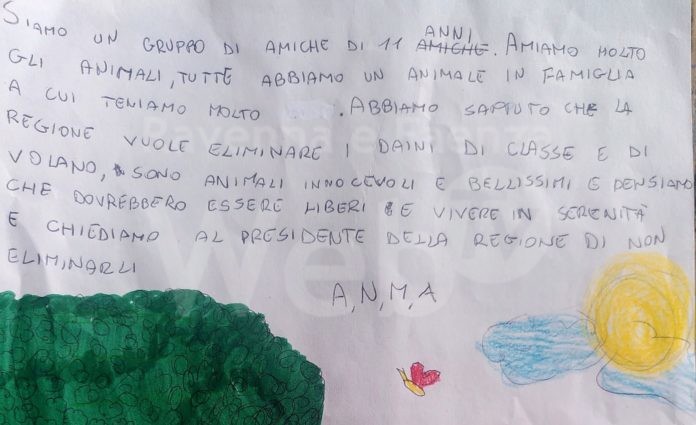 SIAMO UN GRUPPO DI AMICHE DI 11 ANNI AMICHE. AMIAMO MOLTO
GLI ANIMALI, TUTTE ABBIAMO UN ANIMALE IN FAMIGLIA
A CUI TENIAMO MOLTO . ABBIAMO SAPUTO CHE LA
REGIONE VUOLE ELIMINARE I DAINI DI CLASSE E DI
VOLANO, SONO ANIMALI INNOCEVOLI E BELLISSIMI E PENSIAMO
CHE DOVREBBERO ESSERE LIBERI E VIVERE IN SERENITÀ
E CHIEDIAMO AL PRESIDENTE DELLA REGIONE DI NON
ELIMINARLI
A, N, M, A
Ravenna e
web